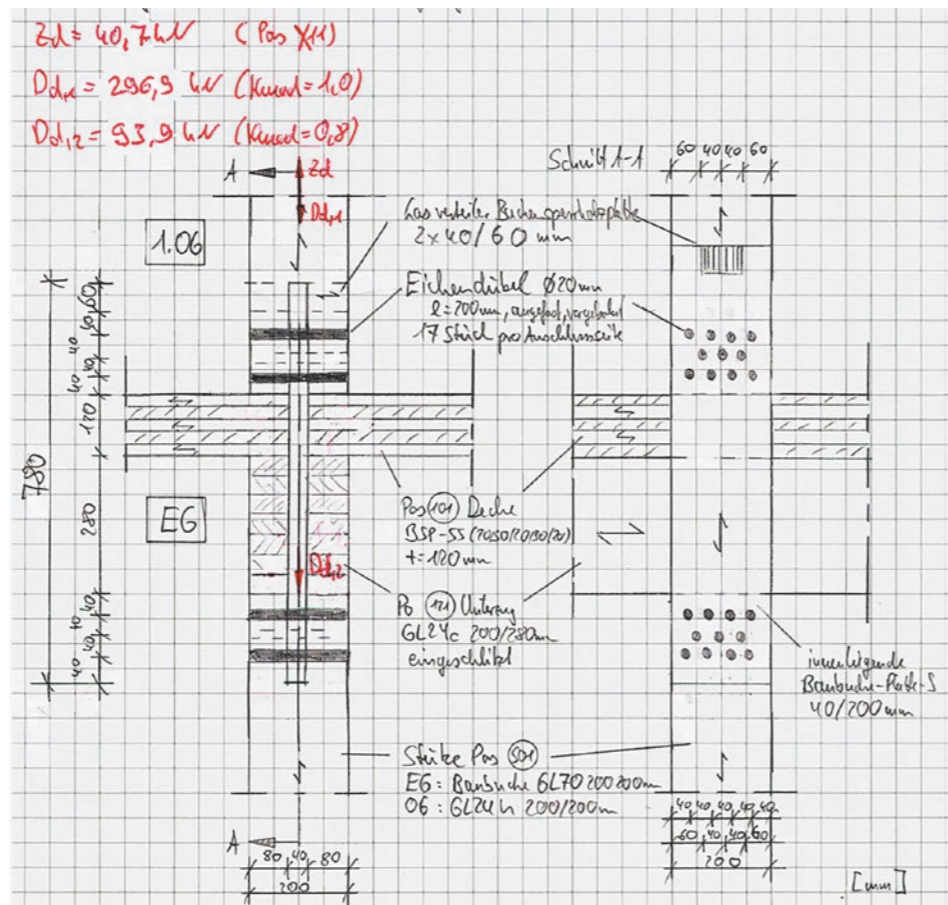 Zd = 40,7 kN (Pos X11)
Dd,1 = 296,9 kN (Kmod=1,0)
Dd,2 = 93,9 kN (Kmod=0,8)
A
Zd
Dd,1
Schnitt 1-1
60 40 40 60
1.06
Buchensperrholzplatte
2x40/60 mm
Eichendübel Ø20mm
l=200mm, vorgebohrt
17 Stück pro Anschlussseite
60
40
40
40
40
120
780
280
EG
Pos 101 Decke
BSP-5S
t=120mm
Dd,2
Pos 121 Unterzug
GL24c 200/280mm
eingeschlitzt
40
40
40
40
innenliegende
Baubuche-Platte-S
40/200mm
Stütze Pos 501
EG: Baubuche GL70 200 200mm
OG: GL24h 200/200m
A
80 40 80
200
40 40 40 40 40
60 40 40 60
200
[mm]